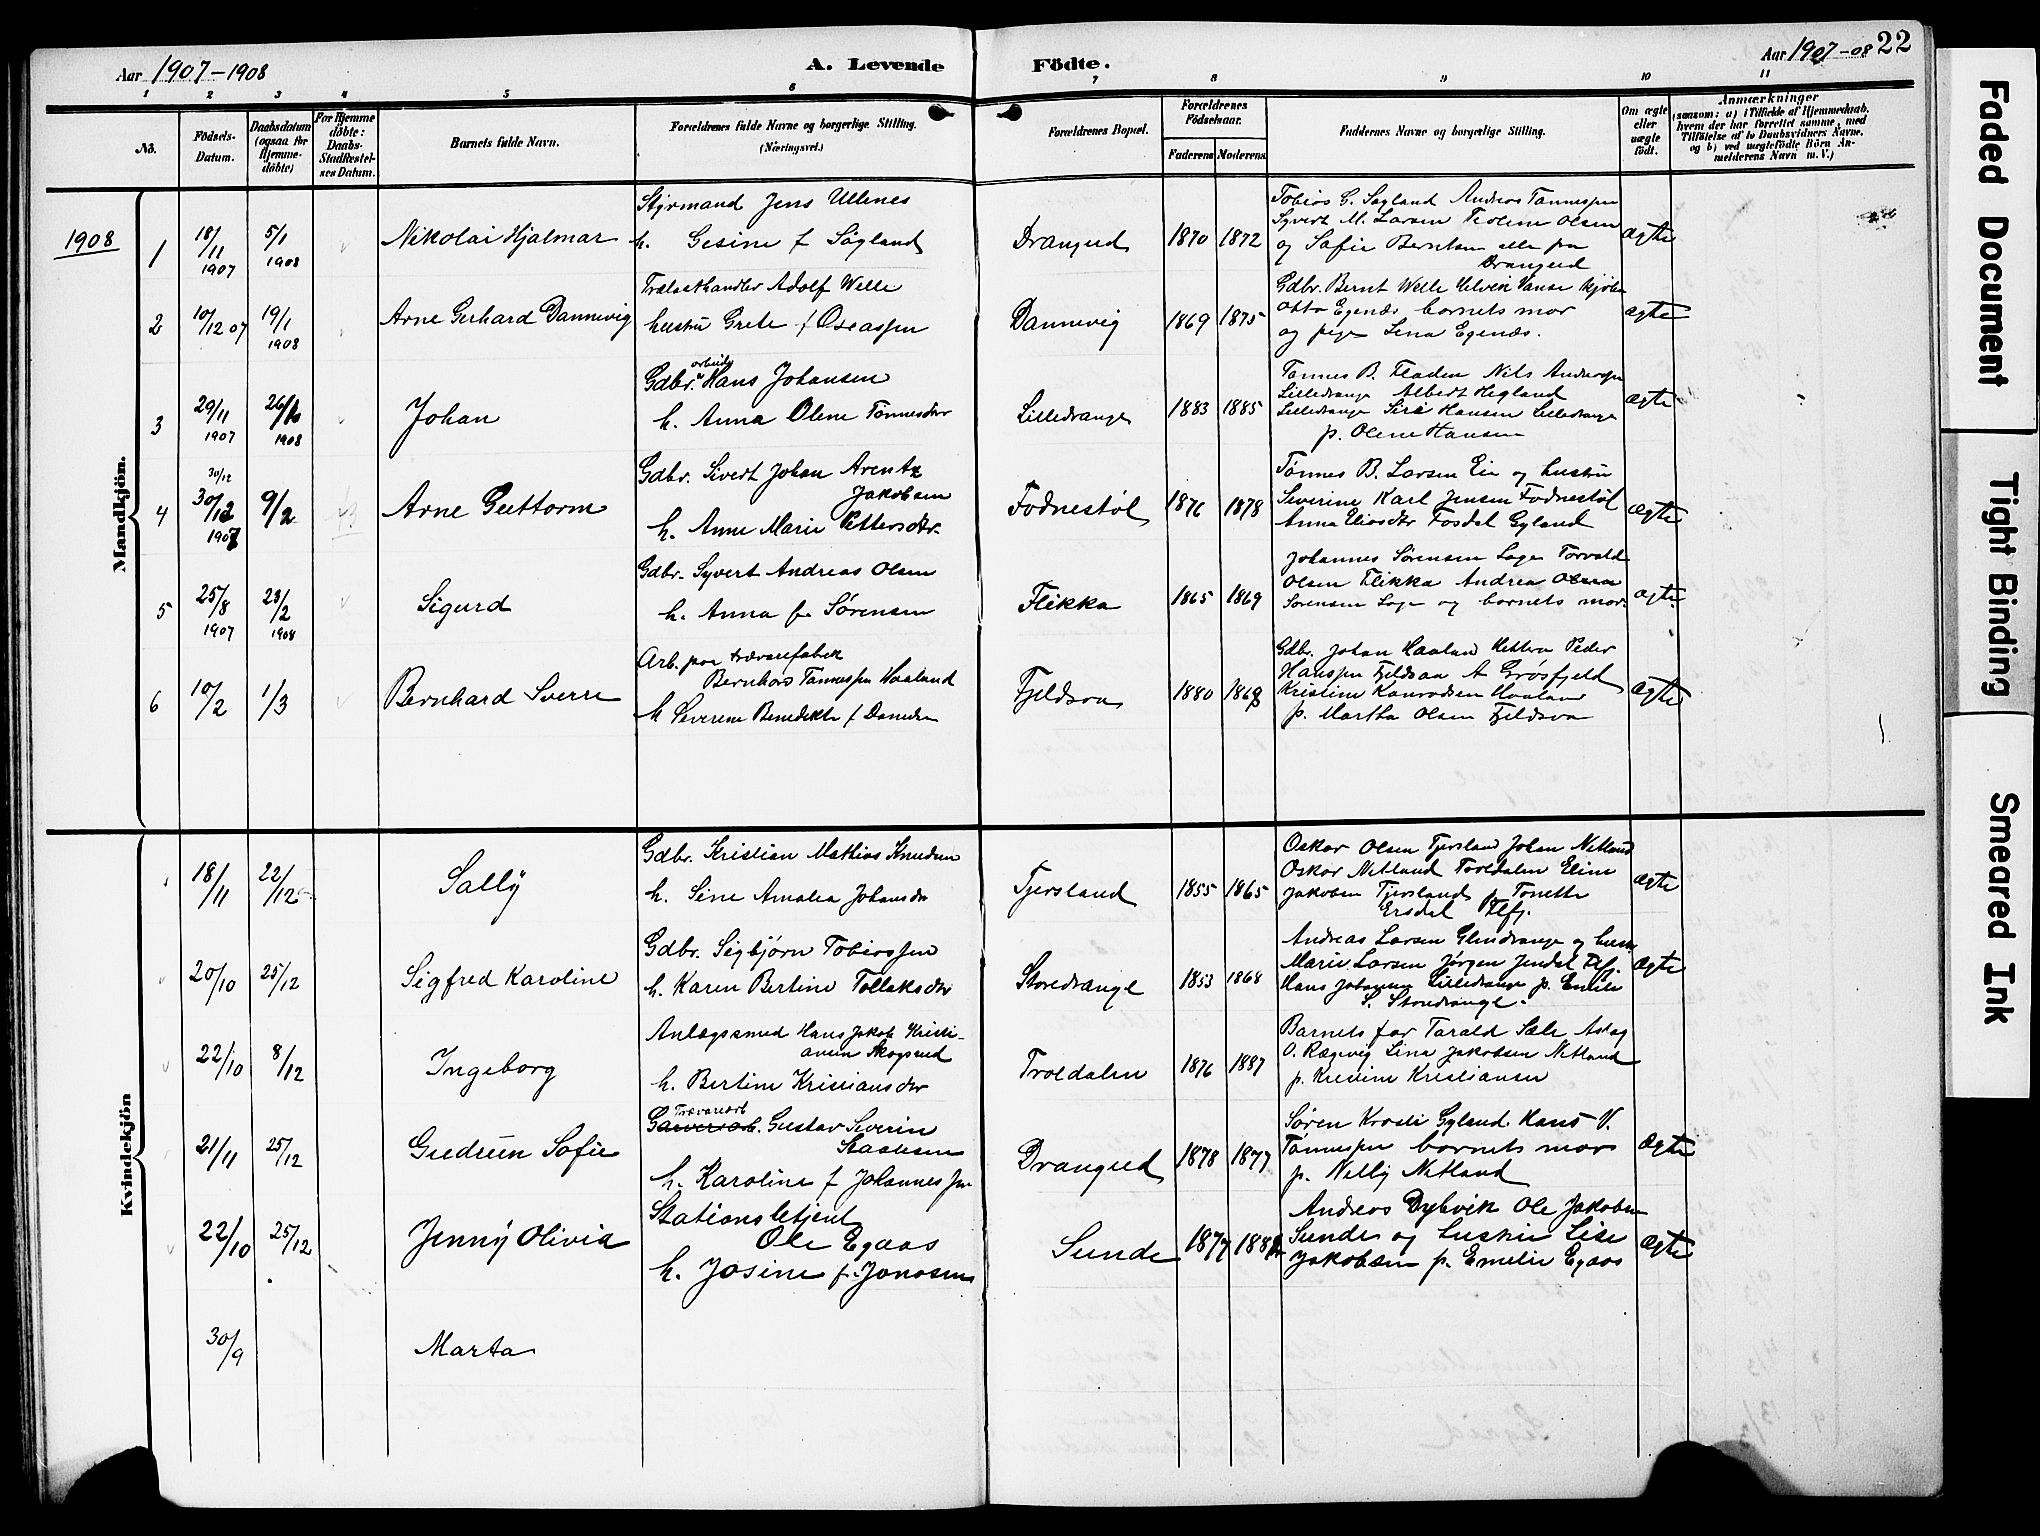 Aar 1907-1908
A. Levende Födte.
Aar 1907-08 22
1 2 3 4 5 6 7 8 9 10 11
No.
Födsels-Datum.
Daabsdatum (ogsaa for Hjemme-döbte)
For Hjemme döbte: Daabs-Stadfæstel-ses Datum.
Barnets fulde Navn.
Forældrenes fulde Navne og borgerlige Stilling.
(Næringsvei.)
Forældrenes Bopæl.
Forældrenes Födselsaar.
Faderens Moderens
Faddernes Navne og borgerlige Stilling.
Om ægte eller uægte födt.
Anmærkninger
(saasom: a) i Tilfælde af Hjemmedaab, hvem der har forrettet samme, med Tilföielse af to Daabsvidners Navne. og b) ved uægtefödte Börn An-melderens Navn m. V.)
Mandkjön.
1908
1 18/11 1907 5/1 1908 Nikolai Hjalmar
Styrmand Jens Ullenes
h. Gesine f Søgland
Drangeid 1870 1872
Tobias G. Søgland Andreas Tønnessen
Syvert M. Larsen Teoline Olsen
og Sofie Berntsen alle paa
Drangeid
ægte
2 10/12 07 19/1 1908 Arne Gerhard Dannevig
Trælasthandler Adolf Welle
hustru Grete f Oseassen
Dannevig 1869 1875
Gdbr. Bernt Welle Helvik Vanse Kjøbm
Otto Egenæs barnets mor
og pige Lena Egenæs.
ægte
3 29/11 1907 26/1 1908 Johan
arbeid
Gdbr. Hans Johansen
h. Anna Olene Tønnesdtr
Lilledrange 1883 1885
Tønnes B. Fladen Nils Andersen
Lilledrange Albert Hegland
Lilledrange Siri Hansen Lilledrange
p. Olene Hansen
ægte
30/12
4 30/12 1907 9/2 Arne Guttorm
Gdbr. Sivert Johan Arentz
Jakobsen
h. Anne Marie Pettersdtr.
Fodnestøl 1876 1878
Tønnes B. Larsen Eie og hustru
Severine Karl Jensen Fodnestøl
Anna Eliasdtr Fosdal Gyland
ægte
5 25/8 1907 23/2 1908 Sigurd
Gdbr. Syvert Andreas Olsen
h. Anna f. Sørensen
Flikka 1865 1869
Johannes Sørensen Loge Torvald
Olsen Flikka Andrea Olsen
Sørensen Loge og barnets mor.
ægte.
6 10/2 1/3 Bernhard Sverre
Arb. paa trævarefabrik
Bernhard Tønnessen Haaland
h Severine Benedikte f Danielsen
Fjeldsaa 1880 1868
Gdbr. Johan Haaland Hettern Peder
Hanssen Fjeldsaa A Grøsfjeld
Kristine Konradsen Haaland
p. Martha Olsen Fjeldsaa
ægte
Kvindekjön
18/11 22/12 Sally
Gdbr. Kristian Mathias Knudsen
h. Sine Amalia Johansdtr
Tjersland 1855 1865
Oskar Olsen Tjersland Johan Netland
Oskar Netland Toreldalen Eline
Jakobsen Tjersland p Tonette
Ersdal Flfj.
ægte
20/10 25/12 Sigfred Karoline
Gdbr. Sigbjørn Tobiassen
h. Karen Bertine Tollaksdtr
Storedrange 1853 1868
Andreas Larsen Glendrange og hustru
Marie Larsen Jørgen Jendal Flfj.
Hans Johansen Lilledrange p. Emilie
S. Storedrange.
ægte
22/10 8/12 Ingeborg
Anlægssmed Hans Jakob Kristi-
ansen Skogseid
h. Bertine Kristiansdtr
Troldalen 1876 1887
Barnets far Tarald Sæle Aslag
O. Rægevig Lina Jakobsen Netland
p. Kristine Kristiansen
21/11 25/12 Gudrun Sofie
Trævarearb
Garverarb. Gustav Severin
Staalesen
h. Karoline f Johannessen
Drangeid 1878 1877
Søren Krosli Gyland Hans V.
Tønnessen barnets mor
p. Nelly Netland
ægte
22/10 25/12 Jenny Olivia
Stationsbetjent
Ole Egaas
h. Josine f. Jonasen
Sunde 1877
Andreas Dybvik Ole Jakobsen
Sunde og hustru Lise
Jakobsen p. Emelie Egaas
ægte
30/9 Marta
Faded Document
Tight Binding
Smeared Ink